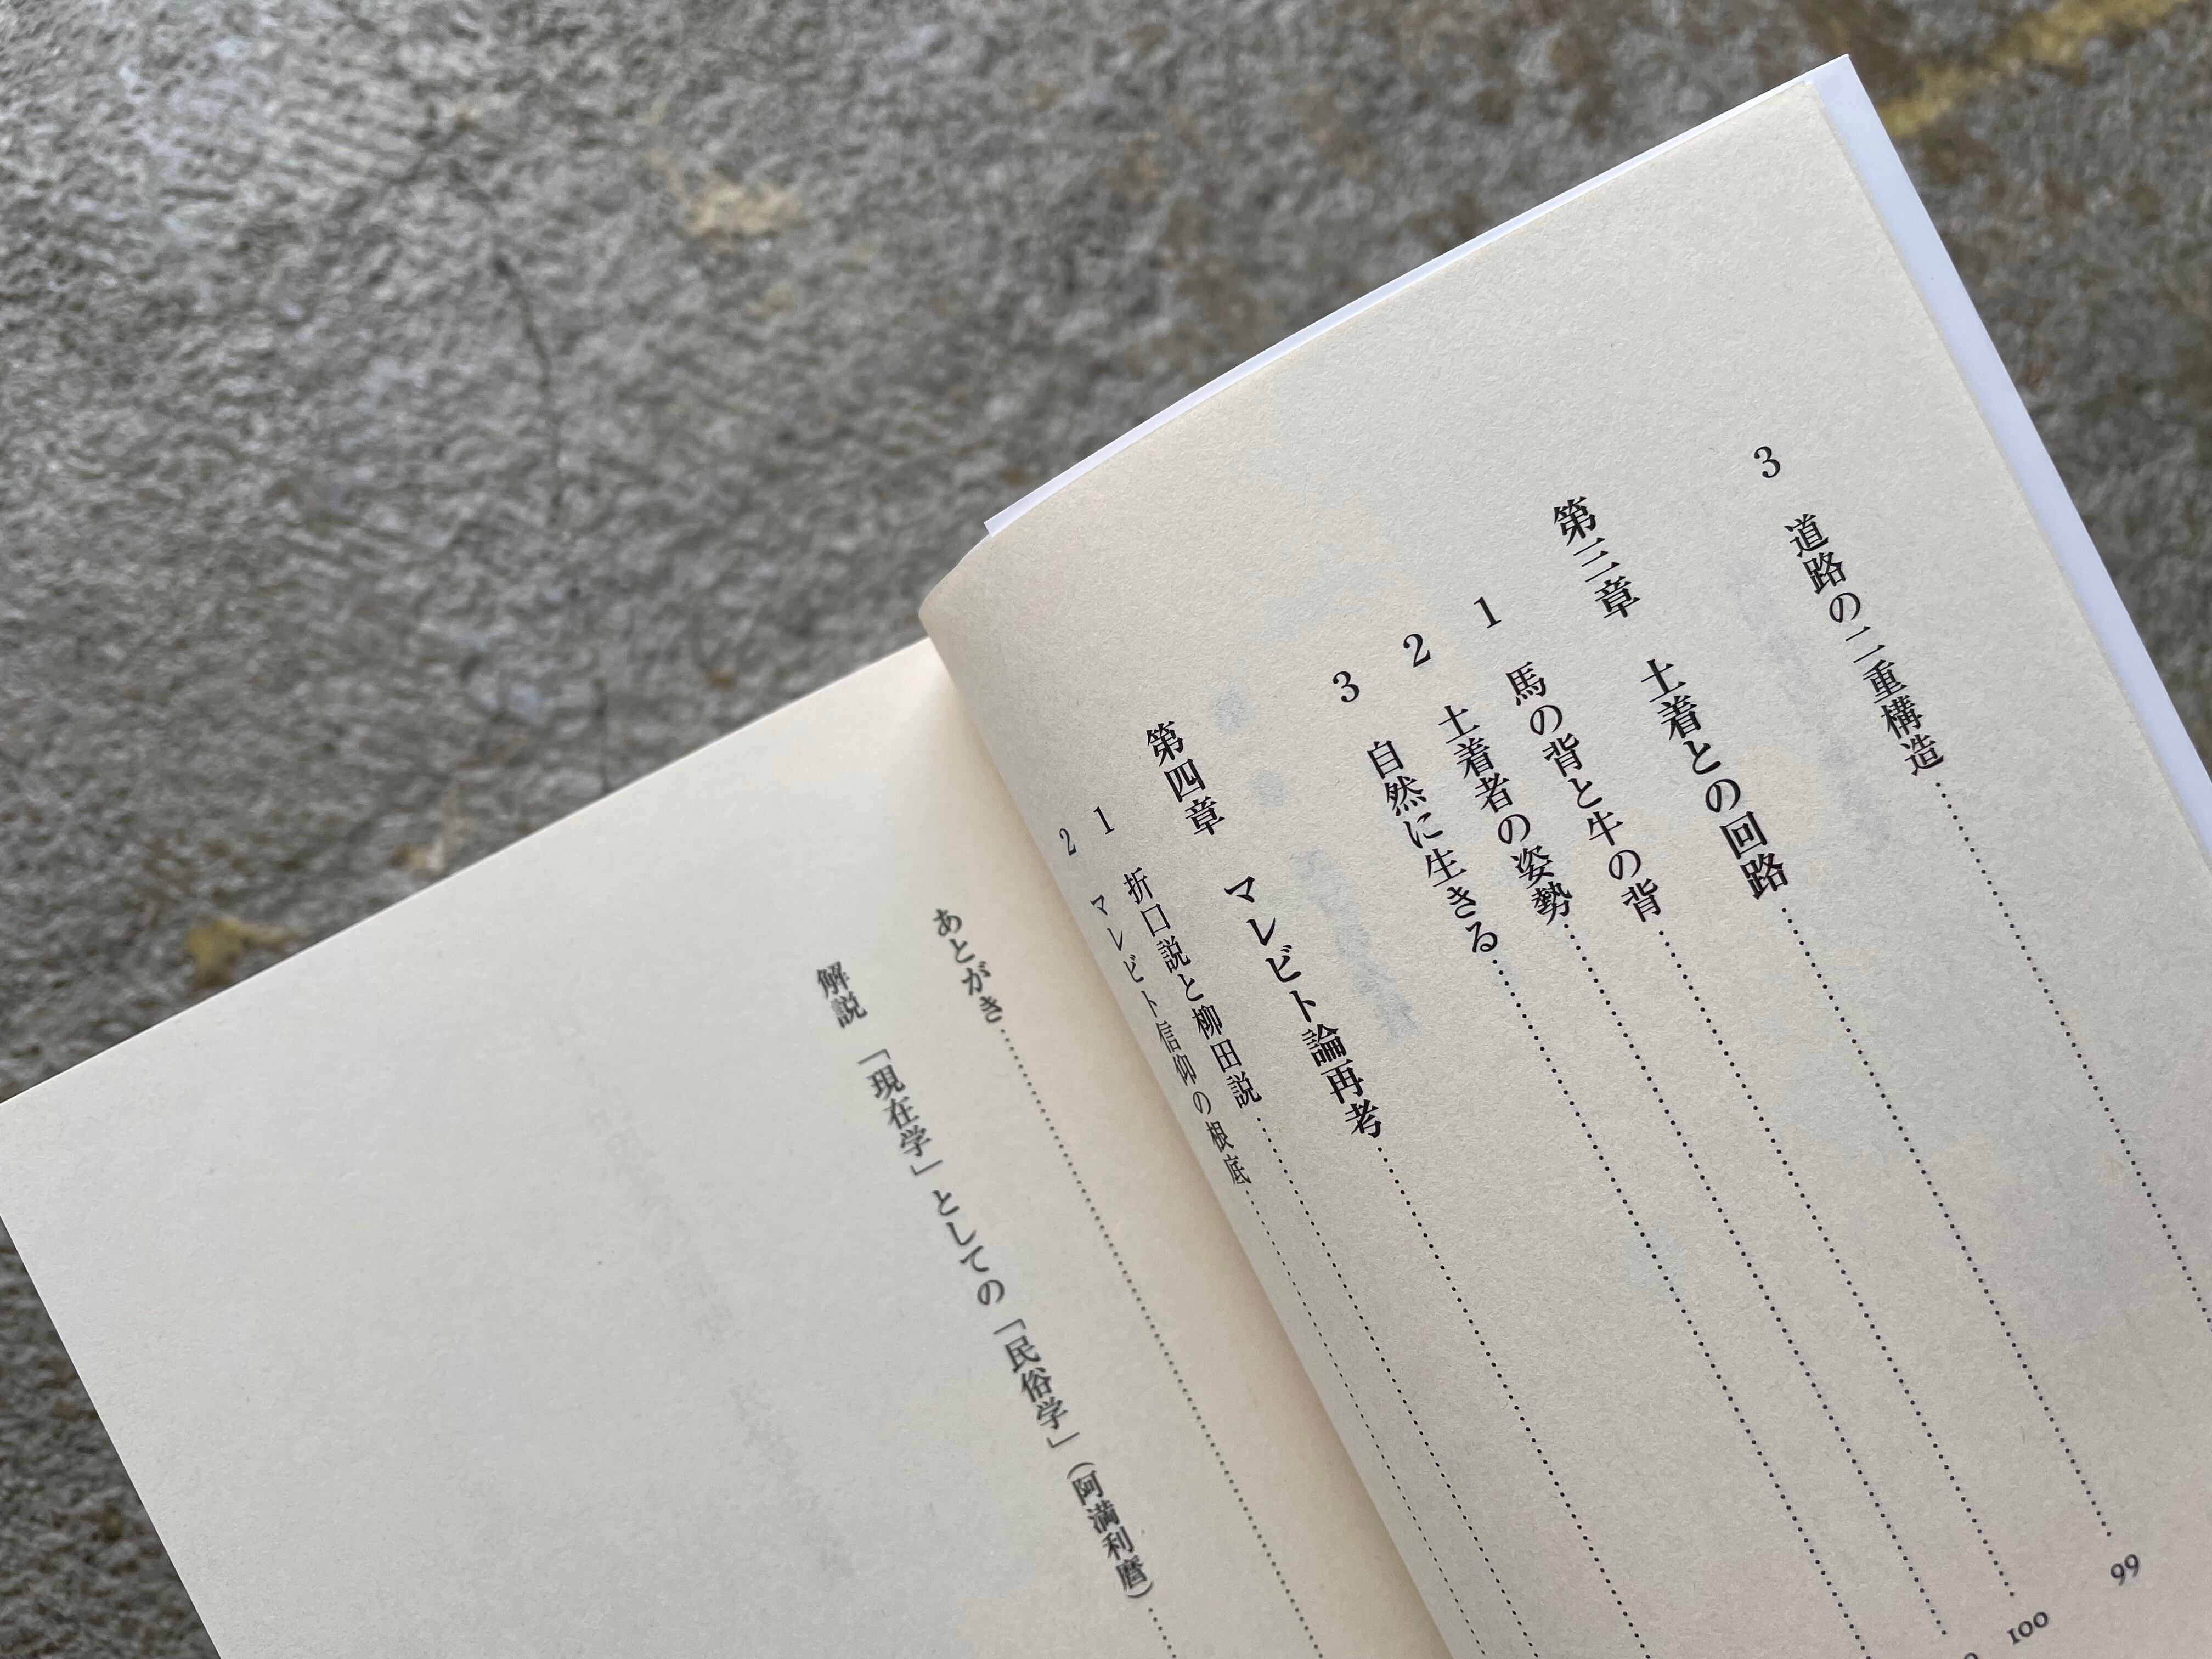 3 道路の二重構造
第三章 土着との回路 99
1 馬の背と牛の背 100
2 土着者の姿勢
3 自然に生きる
第四章 マレビト論再考
1 折口説と柳田説
2 マレビト信仰の根底
あとがき
解説 「現在学」としての「民俗学」（阿満利麿）